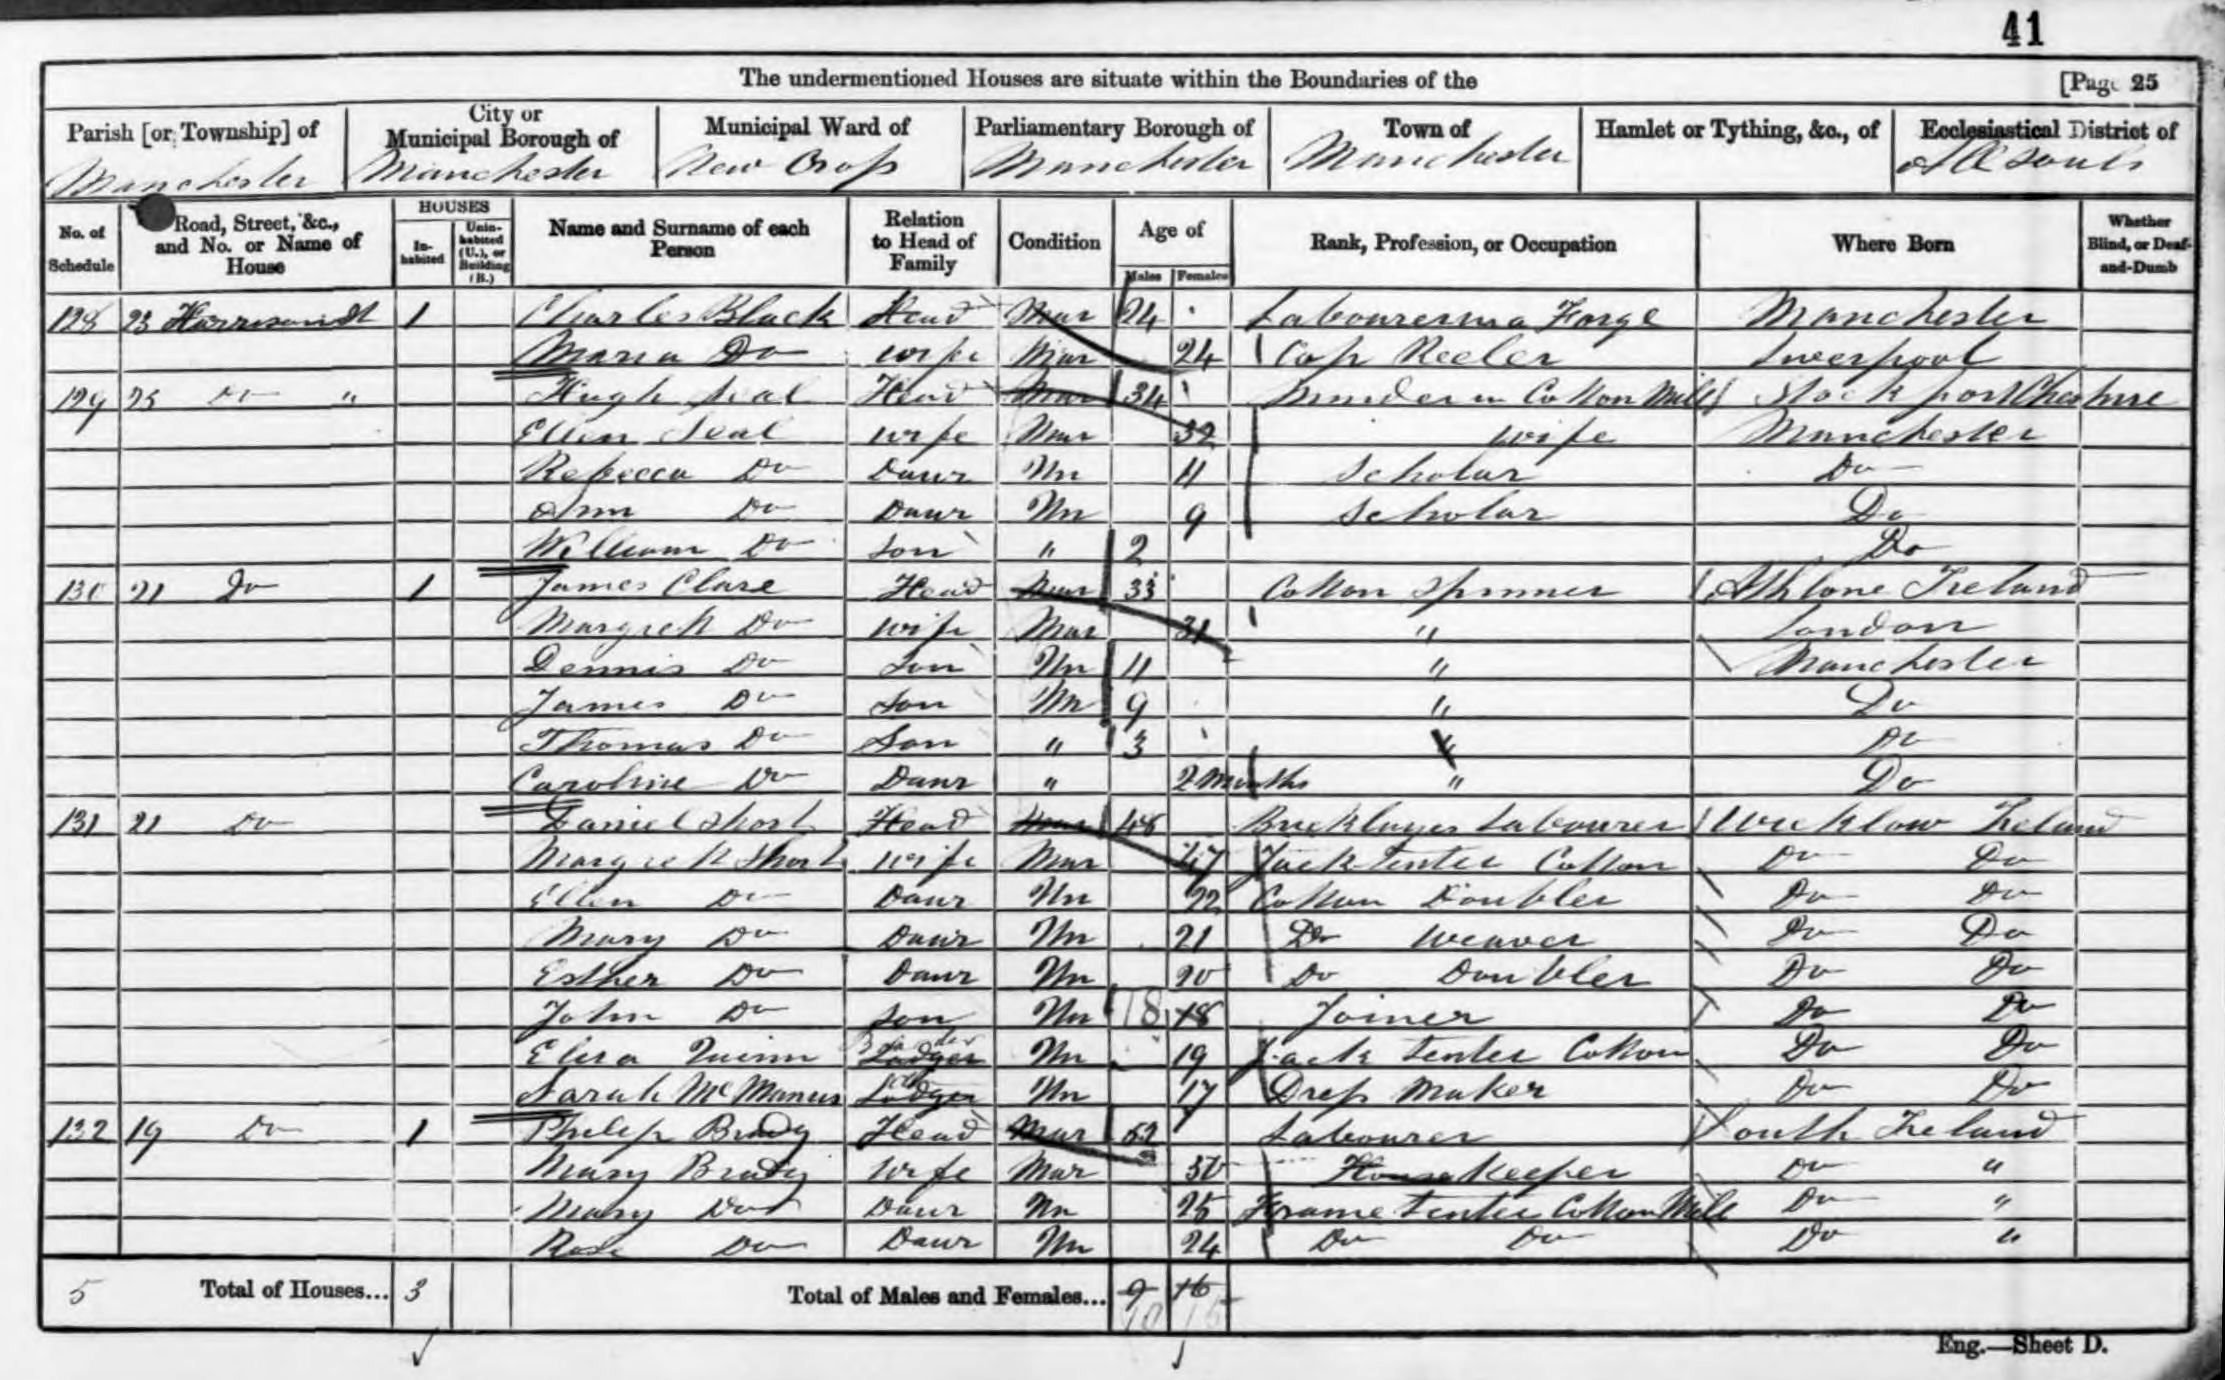 41
The undermentioned Houses are situate within the Boundaries of the [Page 25
Parish [or Township] of
Manchester
City or Municipal Borough of
Manchester
Municipal Ward of
New Cross
Parliamentary Borough of
Manchester
Town of
Manchester
Hamlet or Tything, &c., of
Ecclesiastical District of
All Souls
No. of Schedule
Road, Street, &c., and No. or Name of House
HOUSES
In-habited
Unin-habited (U.), or Building (B.)
Name and Surname of each Person
Relation to Head of Family
Condition
Age of
Males Females
Rank, Profession, or Occupation
Where Born
Whether Blind, or Deaf-and-Dumb
128 23 Harrison St 1 Charles Black Head Mar 24 Labourer in a Forge Manchester
Maria Do wife Mar 24 Cop Reeler Liverpool
129 23 Do " Hugh Seal Head Mar 34 in Cotton Mill Stockport Cheshire
Ellen Seal wife Mar 32 wife Manchester
Rebecca Do Daur Un 11 Scholar Do
Ann Do Daur Un 9 Scholar Do
William Do Son " 2 Do
130 21 Do 1 James Clare Head Mar 33 Cotton Spinner Athlone Ireland
Margrett Do wife Mar 31 " London
Dennis Do Son Un 11 " Manchester
James Do Son Un 9 " Do
Thomas Do Son " 3 " Do
Caroline Do Daur " 2 Months " Do
131 21 Do Daniel Short Head Mar 48 Bricklayers Labourer Wicklow Ireland
Margrett Short wife Mar 47 Jack Tenter Cotton Do Do
Ellen Do Daur Un 22 Cotton Doubler Do Do
Mary Do Daur Un 21 Do Weaver Do Do
Esther Do Daur Un 20 Do Doubler Do Do
John Do Son Un 18 18 Joiner Do Do
Eliza Quinn Lodger Boarder Un 19 Jack Tenter Cotton Do Do
Sarah McManus Lodger Un 17 Dress Maker Do Do
132 19 Do 1 Philip Brady Head Mar 52 Labourer South Ireland
Mary Brady wife Mar 50 House Keeper Do "
Mary Do Daur Un 25 Frame Tenter Cotton Mill Do "
Rose Do Daur Un 24 Do Do Do "
5 Total of Houses... 3 Total of Males and Females... 9 16
10 15
Eng.—Sheet D.